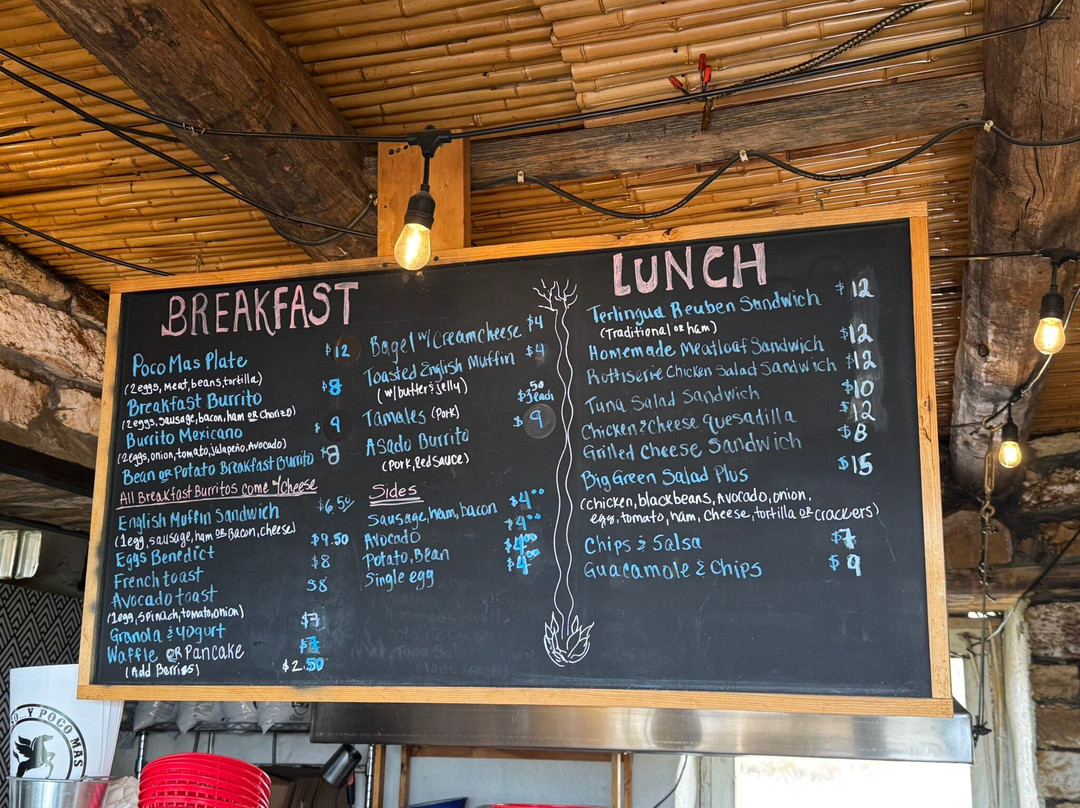 BREAKFAST
Poco Mas Plate $12
(2eggs, Meat, beans, tortilla)
Breakfast Burrito $8
(2eggs, sausage, bacon, ham OR Chorizo)
Burrito Mexicano $9
(2eggs, onion, tomato, jalapeño, Avocado)
Bean OR Potato Breakfast Burrito $8
All Breakfast Burritos come w/Cheese
English Muffin Sandwich $6.50
(1egg, sausage, ham OR Bacon, cheese)
Eggs Benedict $9.50
French toast $8
Avocado toast $8
(1egg, Spinach, tomato, onion)
Granola & Yogurt $7
Waffle OR Pancake
(Add Berries) $2.50
Bagel w/Creamcheese $4
Toasted English Muffin $4
(w/butter & jelly)
Tamales (Pork) $3.50 each
Asado Burrito $9
(Pork, Red Sauce)
Sides
Sausage, ham, bacon $4.00
Avocado $4.00
Potato, Bean $4.00
Single egg $4.00
LUNCH
Terlingua Reuben Sandwich $12
(Traditional OR ham)
Homemade Meatloaf Sandwich $12
Rottiserie Chicken Salad Sandwich $12
Tuna Salad Sandwich $10
Chicken & Cheese Quesadilla $12
Grilled Cheese Sandwich $8
Big Green Salad Plus $15
(chicken, black beans, Avocado, onion,
egg, tomato, ham, cheese, tortilla OR Crackers)
Chips & Salsa $7
Guacamole & Chips $9
Y POCO MAS